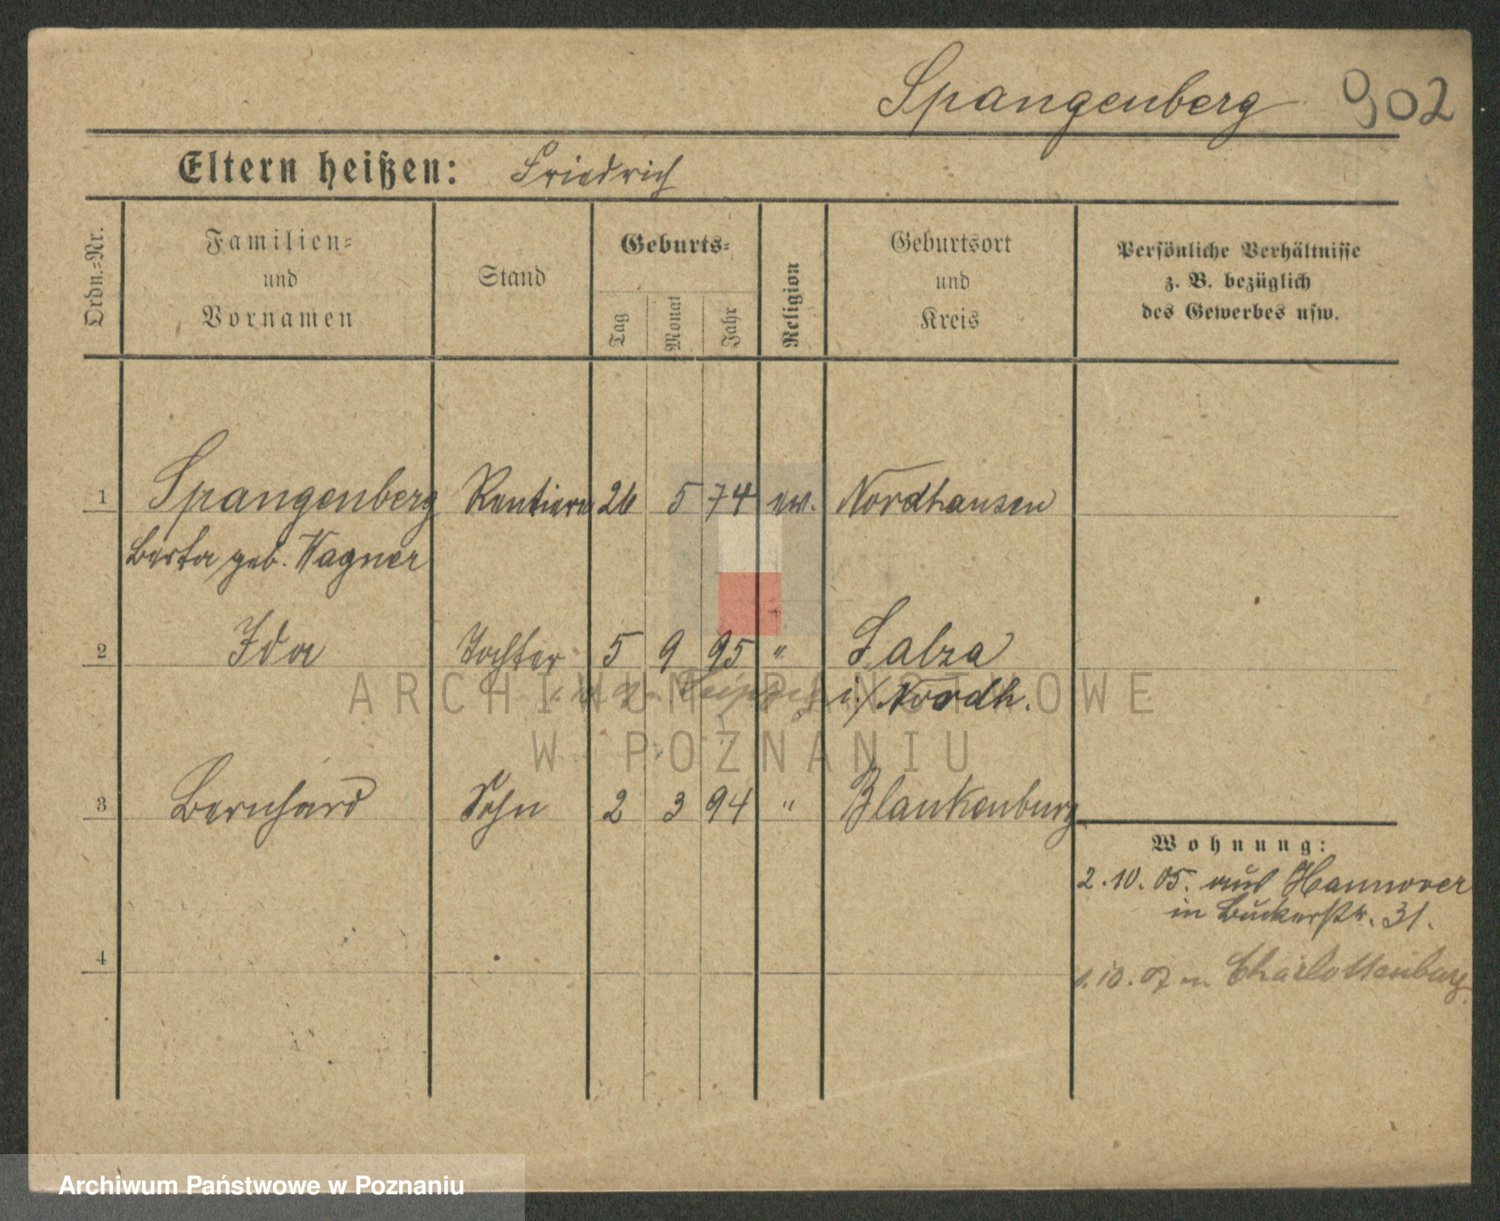 Spangenberg 902
Eltern heißen: Friedrich
Ordn.-Nr.
Familien-
und
Vornamen
Stand
Geburts-
Tag
Monat
Jahr
Religion
Geburtsort
und
Kreis
Persönliche Verhältnisse
z. B. bezüglich
des Gewerbes usw.
1 Spangenberg Rentiere 26 5 74 ev. Nordhausen
Berta geb. Wagner
2 Ida Tochter 5 9 95 " Salza
i/ Nordh.
ARCHIWUM PAŃSTWOWE
W POZNANIU
3 Bernhard Sohn 2 3 94 " Blankenburg
Wohnung:
2.10.05. aus Hannover
in Buckerstr. 31.
4
1.10.07 n Charlottenburg
Archiwum Państwowe w Poznaniu